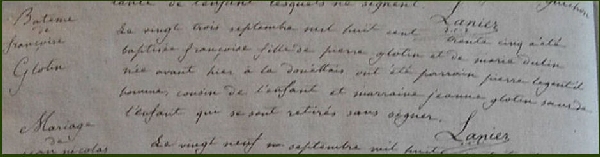 de l'enfant lesquels ne signent
Lanier
Batême
de
françoise
Glotin
Le vingt trois septembre mil huit cent trente cinq a été
baptisée françoise fille de pierre glotin et de marie dutin
née avant hier à la donettais ont été parrain pierre legentil
cousin de l'enfant et marraine jeanne glotin sœur de
l'enfant qui se sont retirés sans signer.
Lanier
Mariage
de
jean nicolas
Le vingt neuf septembre mil huit